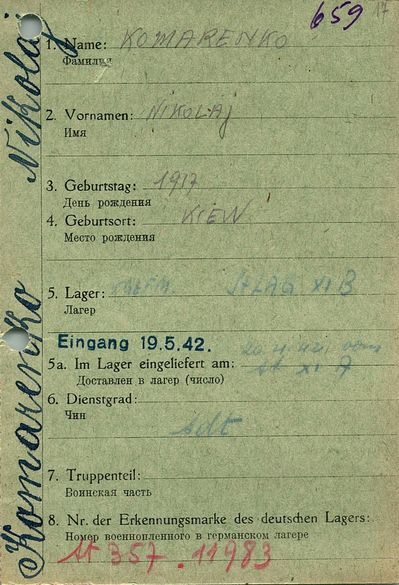 659 17
1. Name: KOMARENKO
Фамилия
2. Vornamen: NIKOLAJ
Имя
3. Geburtstag: 1917
День рождения
4. Geburtsort: KIEW
Место рождения
5. Lager: STLAG XI B
Лагер
Eingang 19.5.42.
5a. Im Lager eingeliefert am:
Доставлен в лагер (число)
6. Dienstgrad:
Чин
Sdt
7. Truppenteil:
Воинская часть
8. Nr. der Erkennungsmarke des deutschen Lagers:
Номер военнопленного в германском лагере
357. 11983
Komarenko Nikolaj